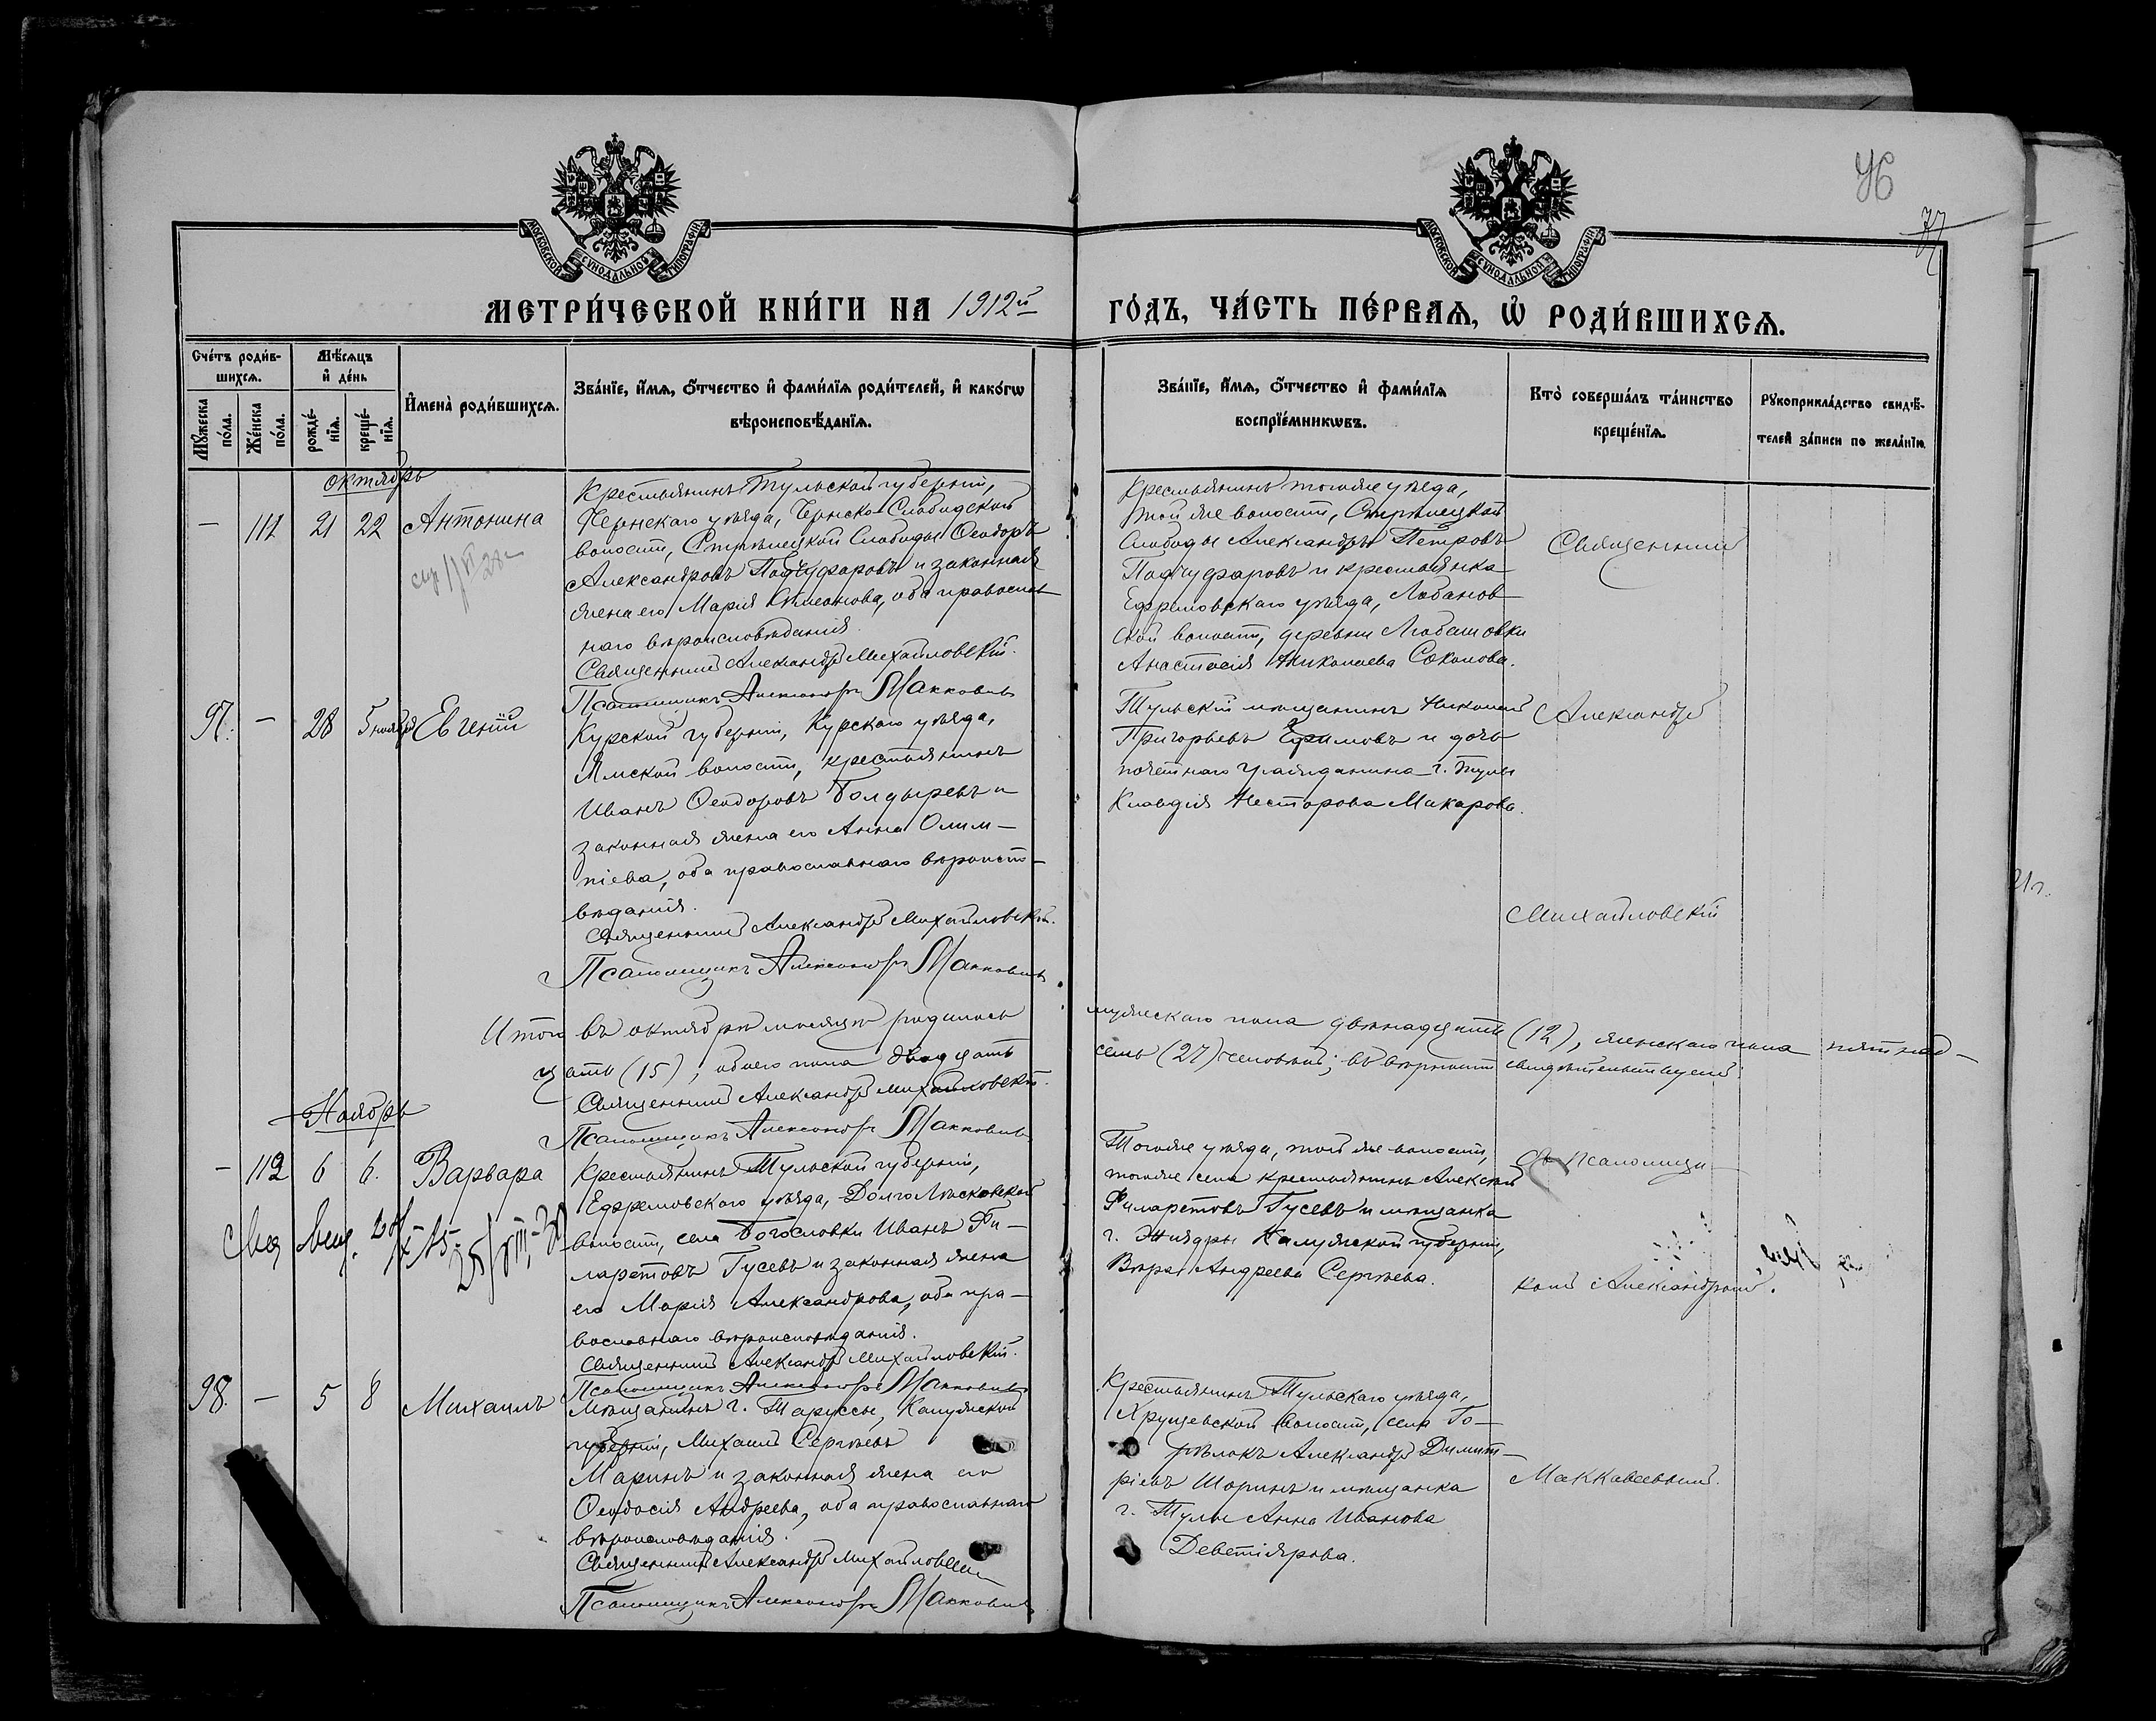 76
77
МОСКОВСКОЙ СѴНОДАЛЬНОЙ ТИПОГРАФІИ
МОСКОВСКОЙ СѴНОДАЛЬНОЙ ТИПОГРАФІИ
МЕТРИ́ЧЕСКОЙ КНИ́ГИ НА 1912й ГО́ДЪ, ЧА́СТЬ ПЕ́РВАѦ, Ѡ РОДИ́ВШИХСѦ.
Сче́тъ роди́в-
шихсѧ.
Мꙋжеска по́ла.
Же́нска по́ла.
Мѣ́сѧцъ
и҆ де́нь
рожде́-
нїѧ.
креще́-
нїѧ.
И҆мена̀ роди́вшихсѧ.
Зва́нїе, и҆́мѧ, ѻ҆́тчество и҆ фами́лїѧ роди́телей, и҆ како́гѡ
вѣроисповѣ́данїѧ.
Зва́нїе, и҆́мѧ, ѻ҆́тчество и҆ фами́лїѧ
воспрїе́мникѡвъ.
Кто̀ соверша́лъ та́инство
креще́нїѧ.
Рꙋкоприкла́дство свидѣ́-
телей за́писи по жела́нїю
Октябрь
— 111 21 22 Антонина
Крестьянинъ Тульской губерніи,
Чернскаго уѣзда, Чернско-Слободской
волости, Стрѣлецкой Слободы Ѳеодоръ
Александровъ Подчуфаровъ и законная
жена его Марія Симеонова, оба православ-
наго вѣроисповѣданія.
Священникъ Александръ Михайловскій.
Псаломщикъ Александръ Маккавеевъ
Крестьянинъ того же уѣзда,
той же волости, Стрѣлецкой
Слободы Александръ Петровъ
Подчуфаровъ и крестьянка
Ефремовскаго уѣзда, Лобанов-
ской волости, деревни Любашовки
Анастасія Николаева Соколова.
Священникъ
97. — 28 5 ноября Евгеній
Курской губерніи, Курскаго уѣзда,
Ямской волости, крестьянинъ
Иванъ Ѳеодоровъ Болдыревъ и
законная жена его Анна Олим-
піева, оба православнаго вѣроиспо-
вѣданія.
Священникъ Александръ Михайловскій.
Псаломщикъ Александръ Маккавеевъ
Тульскій мѣщанинъ Николай
Григорьевъ Ефимовъ и дочь
почетнаго гражданина г. Тулы
Клавдія Несторова Макарова.
Александръ
Михайловскій
Итого въ октябрѣ мѣсяцѣ родилось мужескаго пола двѣнадцать (12), женскаго пола пятнад-
цать (15), обоего пола двадцать семь (27) человѣкъ; въ вѣрности свидѣтельствуемъ:
Священникъ Александръ Михайловскій.
Псаломщикъ Александръ Маккавеевъ
Ноябрь
— 112 6 6. Варвара
Крестьянинъ Тульской губерніи,
Ефремовскаго уѣзда, Долголѣсковской
волости, села Богословки Иванъ Фи-
ларетовъ Гусевъ и законная жена
его Марія Александрова, оба пра-
вославнаго вѣроисповѣданія.
Священникъ Александръ Михайловскій.
Псаломщикъ Александръ Маккавеевъ
Того же уѣзда, той же волости,
того же села крестьянинъ Алексѣй
Филаретовъ Гусевъ и мѣщанка
г. Жиздры Калужской губерніи,
Вѣра Андреева Сергѣева.
съ псаломщи-
комъ Александромъ
98. — 5 8 Михаилъ
Мѣщанинъ г. Таруссы, Калужской
губерніи, Михаилъ Сергѣевъ
Маринъ и законная жена его
Ѳеодосія Андреева, оба православнаго
вѣроисповѣданія.
Священникъ Александръ Михайловскій
Псаломщикъ Александръ Маккавеевъ
Крестьянинъ Тульскаго уѣзда,
Хрущевской волости, села Го-
рѣлокъ Александръ Димит-
ріевъ Шоринъ и мѣщанка
г. Тулы Анна Иванова
Деветіярова.
Маккавеевымъ.